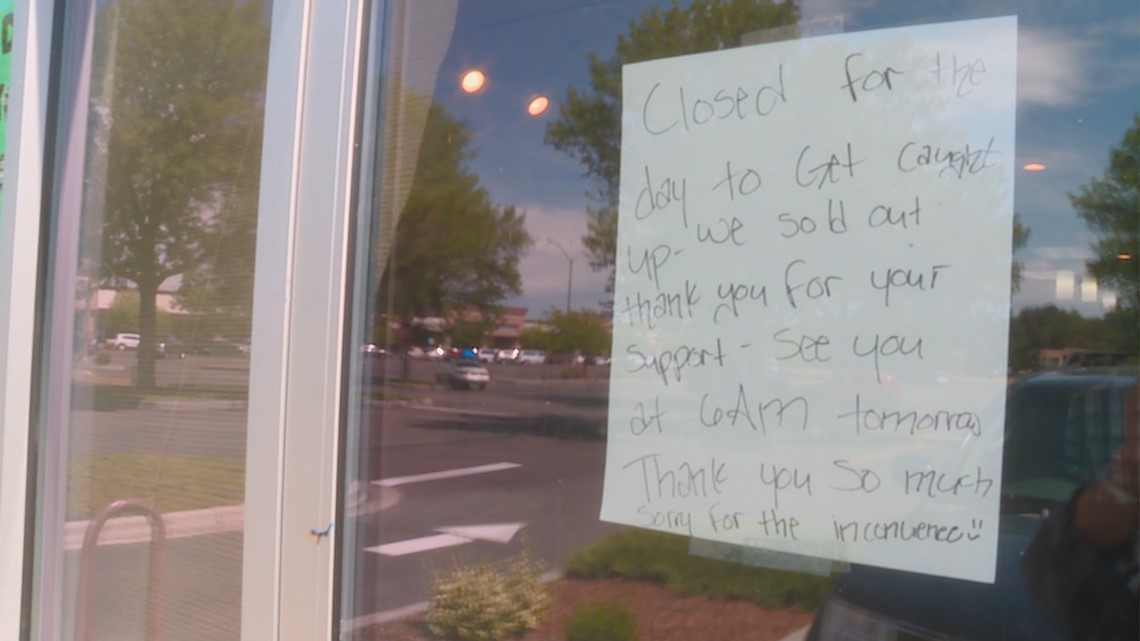 Closed for the
day to Get caught
up- we sold out
thank you for your
support - See you
at 6Am tomorrow
Thank you so much
sorry for the inconvience